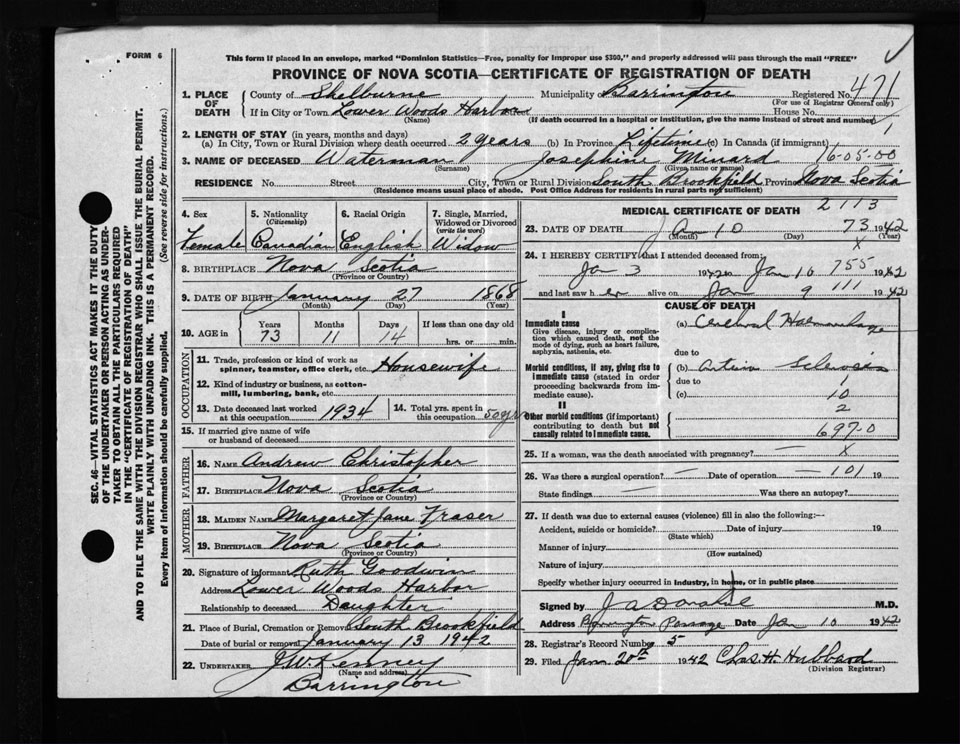 FORM 6
This form if placed in an envelope, marked "Dominion Statistics—Free, penalty for improper use $300," and properly addressed will pass through the mail "FREE"
PROVINCE OF NOVA SCOTIA—CERTIFICATE OF REGISTRATION OF DEATH
SEC. 46—VITAL STATISTICS ACT MAKES IT THE DUTY
OF THE UNDERTAKER OR PERSON ACTING AS UNDER-
TAKER TO OBTAIN ALL THE PARTICULARS REQUIRED
IN THE "CERTIFICATE OF REGISTRATION OF DEATH"
AND TO FILE THE SAME WITH THE DIVISION REGISTRAR WHO SHALL ISSUE THE BURIAL PERMIT.
WRITE PLAINLY WITH UNFADING INK. THIS IS A PERMANENT RECORD.
Every item of information should be carefully supplied. (See reverse side for instructions.)
1. PLACE OF DEATH County of Shelburne Municipality of Barrington Registered No. 471
(For use of Registrar General only)
If in City or Town Lower Woods Harbour Street House No.
(Name) (If death occurred in a hospital or institution, give the name instead of street and number)
2. LENGTH OF STAY (in years, months and days)
(a) In City, Town or Rural Division where death occurred 2 years (b) In Province Lifetime (c) In Canada (if immigrant)
3. NAME OF DECEASED Waterman Josephine Minard 16-05-00
(Surname) (Given name or names)
RESIDENCE No. Street City, Town or Rural Division South Brookfield Province Nova Scotia
(Residence means usual place of abode. Post Office Address for residents in rural parts not sufficient)
4. Sex Female
5. Nationality (Citizenship) Canadian
6. Racial Origin English
7. Single, Married, Widowed or Divorced (write the word) Widow
8. BIRTHPLACE Nova Scotia
(Province or Country)
9. DATE OF BIRTH January 27 1868
(Month) (Day) (Year)
10. AGE in Years Months Days If less than one day
73 11 14 hrs. or min.
OCCUPATION
11. Trade, profession or kind of work as spinner, teamster, office clerk, etc. Housewife
12. Kind of industry or business, as cotton-mill, lumbering, bank, etc.
13. Date deceased last worked at this occupation 1934
14. Total yrs. spent in this occupation 50 yrs
15. If married give name of wife or husband of deceased
FATHER
16. NAME Andrew Christopher
17. BIRTHPLACE Nova Scotia
(Province or Country)
MOTHER
18. MAIDEN NAME Margaret Jane Fraser
19. BIRTHPLACE Nova Scotia
(Province or Country)
20. Signature of informant Ruth Goodwin
Address Lower Woods Harbor
Relationship to deceased Daughter
21. Place of Burial, Cremation or Removal South Brookfield
Date of burial or removal January 13 1942
22. UNDERTAKER J.W. Kenney
(Name and address)
Barrington
MEDICAL CERTIFICATE OF DEATH
2113
23. DATE OF DEATH Ja 10 73 1942
(Month) (Day) (Year)
x
24. I HEREBY CERTIFY that I attended deceased from
Jan 3 1942 to Jan 10 755 1942
and last saw her alive on Jan 9 111 1942
CAUSE OF DEATH
I
Immediate cause
Give disease, injury or complication which caused death, not the mode of dying, such as heart failure, asphyxia, asthenia, etc.
(a) Cerebral Haemorrhage
due to
Morbid conditions, if any, giving rise to immediate cause (stated in order proceeding backwards from immediate cause).
(b) Arterio Sclerosis
due to 1
(c) 10
II 2
Other morbid conditions (if important) contributing to death but not causally related to immediate cause.
697-0
25. If a woman, was the death associated with pregnancy? x
26. Was there a surgical operation? — Date of operation — 101 19
State findings — Was there an autopsy?
27. If death was due to external causes (violence) fill in also the following:—
Accident, suicide or homicide? Date of injury 19
(State which)
Manner of injury
(How sustained)
Nature of injury
Specify whether injury occurred in industry, in home, or in public place
Signed by M.D.
Address Passage Date Jan 10 1942
28. Registrar's Record Number 5
29. Filed Jan. 20th 1942 Chas. H. Hubbard
(Division Registrar)